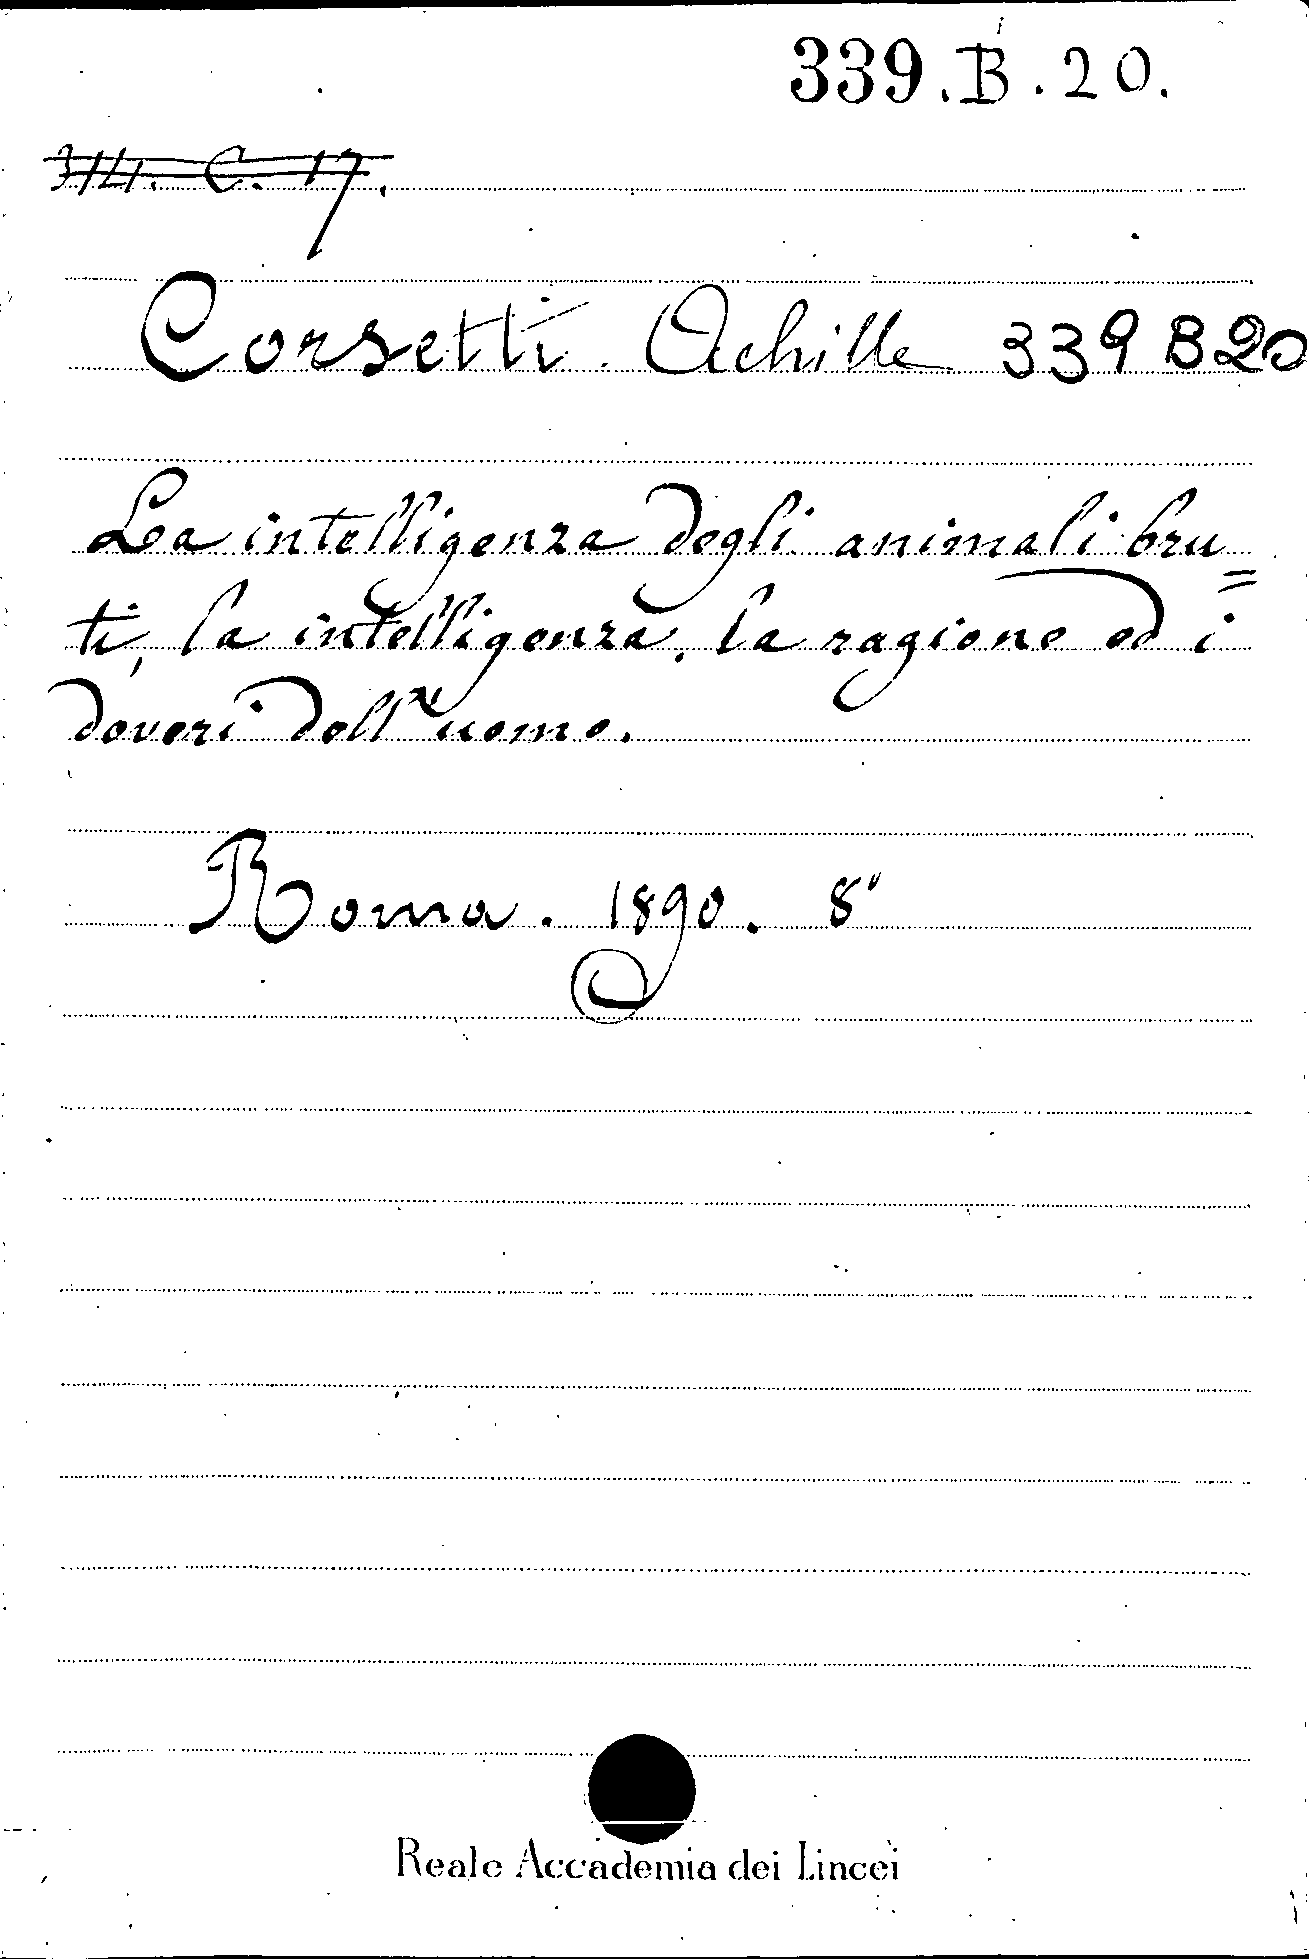 339.B.20.
314. C. 17.
Corsetti Achille 339 B 20
La intelligenza degli animali bru=
ti, la intelligenza, la ragione ed i
doveri dell'uomo.
Roma. 1890. 8°
Reale Accademia dei Lincei